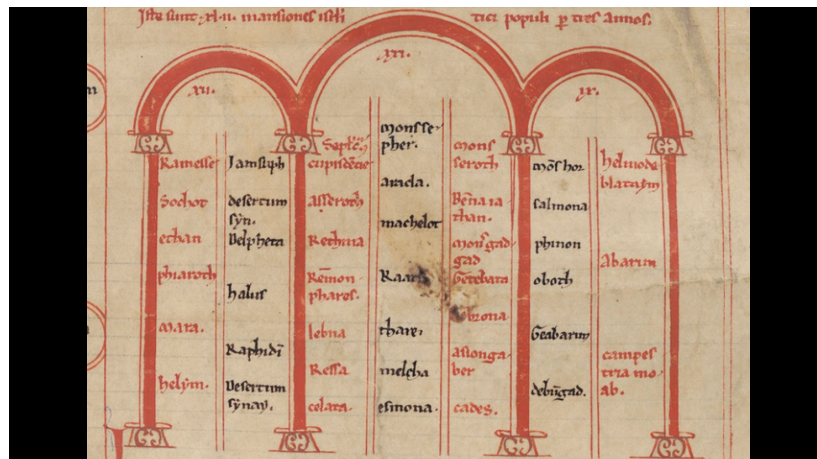 Iste sunt .xl.ii. mansiones isrl'itici populi p tres annos.
.xii.
.xxi.
.ix.
Ramesse
Sochot
ethan
phiaroth
mara.
helym.
Iamsuph
desertum
syn.
Delpheca
halus
Raphidī
Desertum
synay.
Sepulc̄
cupiscētie
Asseroth
Rethma
Remon
phares.
lebna
Ressa
celata.
mons se
pher.
arada.
machelot
thare.
melcha
esmona.
mons
seroth
Beñaia
than.
mons gad
gad
Getebata
asionga
ber
cades.
mōs hor
salmona
phinon
oboth
Geabarim
debūgad.
helmode
blataym
Abarim
campes
tria mo
ab.